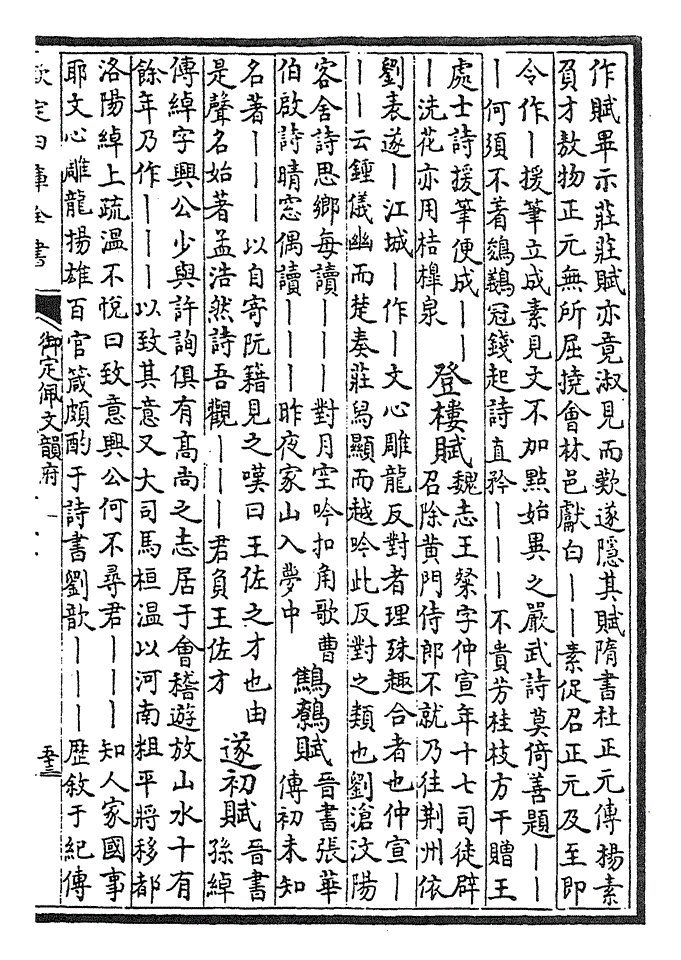 作賦畢示莊莊賦亦竟淑見而歎遂隱其賦隋書杜正元傳揚素
負才敖物正元無所屈撓會林邑獻白——素促召正元及至即
令作—援筆立成素見文不加點始異之嚴武詩莫倚善題——
—何須不着鵕鸃冠錢起詩直矜———不貴芳桂枝方干贈王
處士詩援筆便成——
—洗花亦用桔槹泉
登樓賦
魏志王粲字仲宣年十七司徒辟
召除黄門侍郎不就乃往荆州依
劉表遂—江城—作—文心雕龍反對者理殊趣合者也仲宣—
——云鍾儀幽而楚奏莊舄顯而越吟此反對之類也劉滄汶陽
客舍詩思鄉每讀———對月空吟扣角歌曹
伯啟詩晴窓偶讀———昨夜家山入夢中
鷦鷯賦
晉書張華
傳初未知
名著———以自寄阮籍見之嘆曰王佐之才也由
是聲名始著孟浩然詩吾觀———君負王佐才
遂初賦
晉書
孫綽
傳綽字興公少與許詢俱有髙尚之志居于會稽遊放山水十有
餘年乃作———以致其意又大司馬桓温以河南粗平將移都
洛陽綽上疏温不悦曰致意興公何不尋君———知人家國事
耶文心雕龍揚雄百官箴頗酌于詩書劉歆———歴敘于紀傳
欽定四庫全書
御定佩文韻府